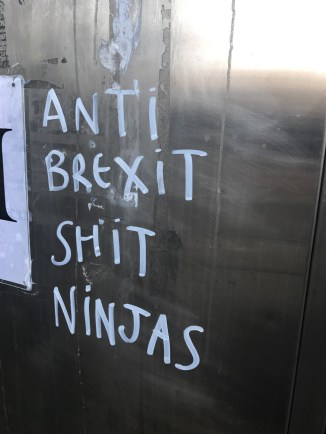 ANTi
BREXiT
SHiT
NiNJAS